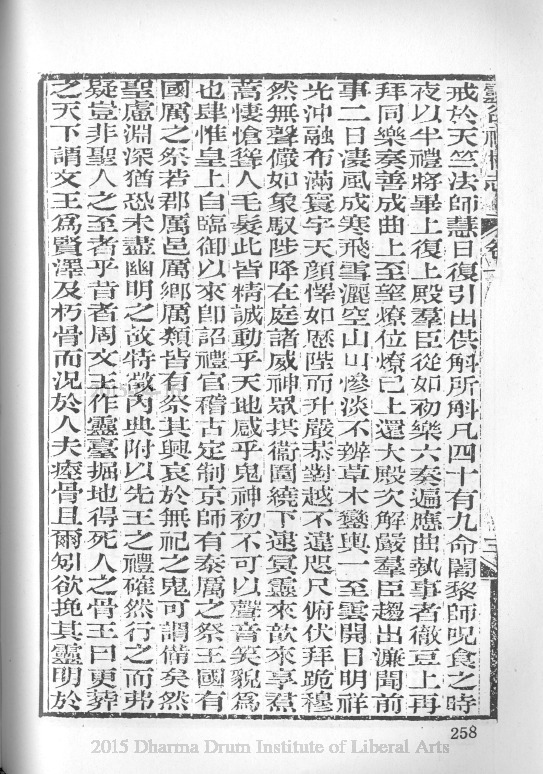 靈谷禪林志 卷一
戒於天竺法師慧日復引出供斛所斛凡四十有九命闍黎師呪食之時
夜以半禮將畢上復上殿羣臣從如初樂六奏遍應曲執事者徹豆上再
拜同樂奏善成曲上至望燎位燎已上還大殿次解嚴羣臣趨出濂聞前
事二日淒風成寒飛雪灑空山川慘淡不辨草木鑾輿一至雲開日明祥
光沖融布滿寰宇天顏懌如歷陛而升嚴恭對越不違咫尺俯伏拜跪穆
然無聲儼如象馭陟降在庭諸威神眾拱衞圍繞下逮冥靈來歆來享焄
蒿悽愴聳人毛髮此皆精誠動乎天地感乎鬼神初不可以聲音笑貌爲
也肆惟皇上自臨御以來卽詔禮官稽古定制京師有泰厲之祭王國有
國厲之祭若郡厲邑厲鄉厲類皆有祭其興哀於無祀之鬼可謂備矣然
聖慮淵深猶恐未盡幽明之故特徵內典附以先王之禮確然行之而弗
疑豈非聖人之至者乎昔者周文王作靈臺掘地得死人之骨王曰更葬
之天下謂文王爲賢澤及朽骨而況於人夫瘞骨且爾矧欲挽其靈明於
258
2015 Dharma Drum Institute of Liberal Arts